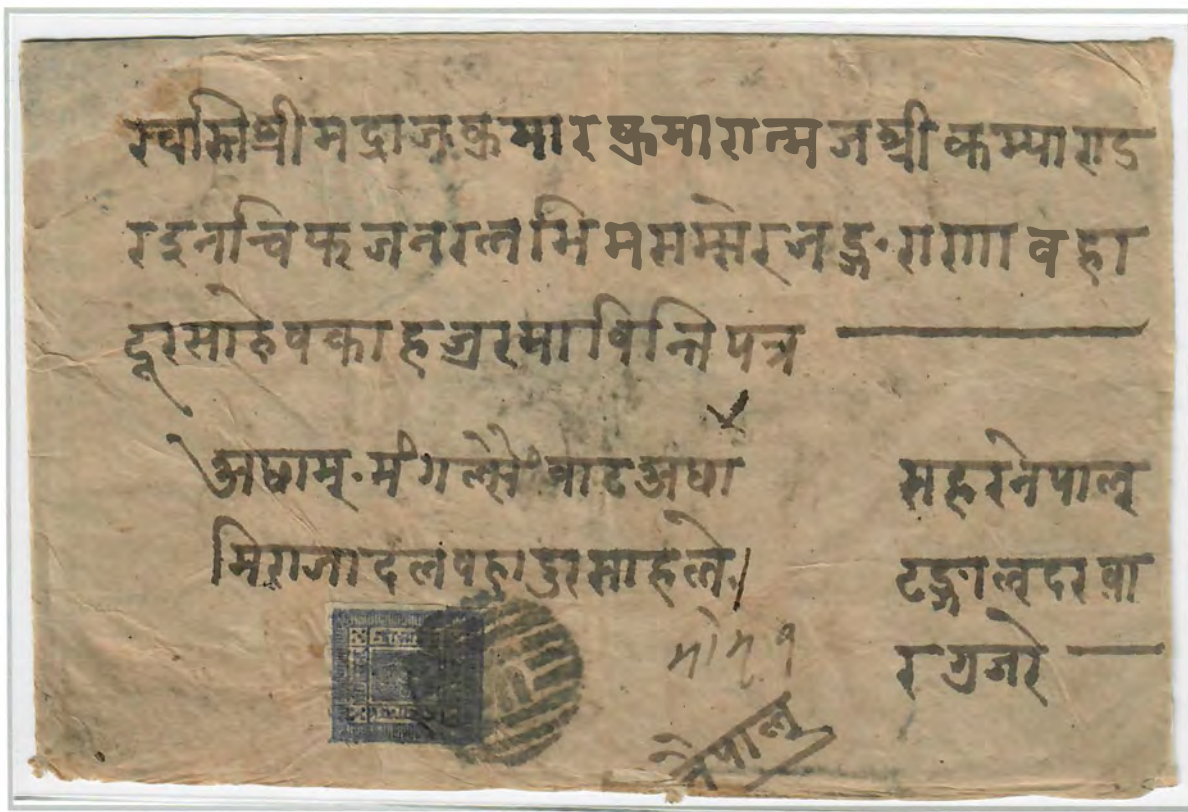 स्वस्तिश्रीमद्राजकुमारकुमारात्मजश्रीकम्याराड
रइनचिफजनरलभिमसम्सेरजङ्ग·राणावहा
दूरसाहेवकाहजुरमाविन्तिपत्र
अछाम्·मंगल्सेंवाटअछा
मिराजादलवहादुरसाहले।
सहरनेपाल्
टङ्गाल्दरवा
रगुजरे
नेपाल्